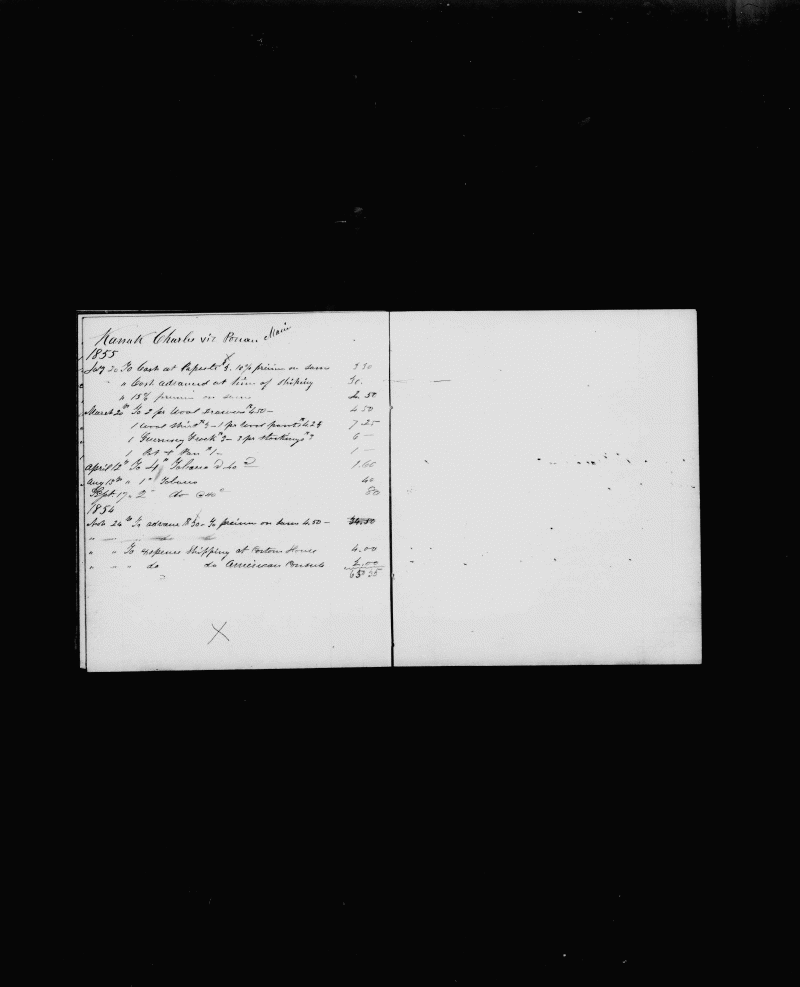 Kanak Charles viz Ponan Maui
1855
July 20 To Cash at Papeete $3. 10% preium on same 3 30
" Cash advanced at time of shiping 30.
" 15% premium on same 4.50
March 20th To 2 pr Wool Drawers $4.50 – 4 50
1 Wool Shirt $3 – 1 pr Wool pants $4.25 7.25
1 Guernsey Frock $3 – 3 pr stockings $3 6 –
1 Pot & Pan $1 – 1 –
April 12th To 4lb Tobacco @ 40 1.60
Aug 13th " 1" Tobacco 40
Sept. 17 " 2" do 80
1854
Nov. 24th To advance $30. To preium on same 4.50 – 34.50
" " To expence Shipping at Costom House 4.00
" " " do do American Consul 2.00
65 35
X